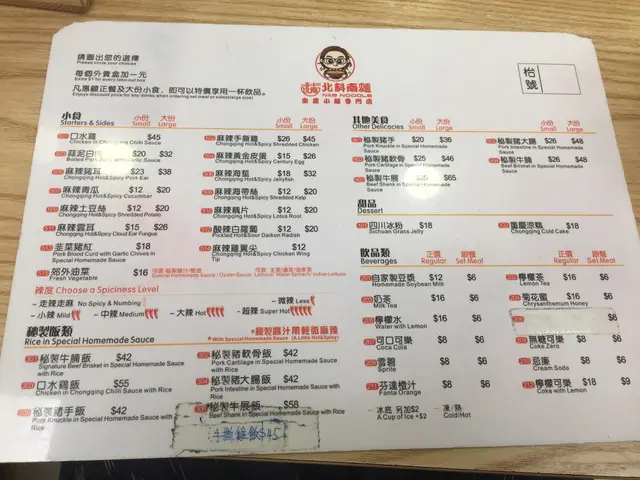 請圈出您的選擇
Please circle your choices
每個外賣盒加一元
Extra $1 for every take-out box
凡惠顧正餐及大份小食，即可以特價享用一杯飲品。
Enjoy discount price for any drinks when ordering set meal or sides(large size)
北斜南麵
N&B NOODLE
重慶小麵專門店
枱號
小食 小份 大份
Starters & Sides Small Large
口水雞 $45
Chicken in Chongqing Chilli Sauce
蒜泥白 $20 $32
Boiled Pork Belly with Garlic Sauce
麻辣豬耳 $23 $38
Chongqing Hot&Spicy Pork Ear
麻辣青瓜 $12 $20
Chongqing Hot&Spicy Cucumber
麻辣土豆絲 $12 $20
Chongqing Hot&Spicy Shredded Potato
麻辣雲耳 $15 $26
Chongqing Hot&Spicy Cloud Ear Fungus
韮菜豬紅 $18
Pork Blood Curd with Garlic Chives in Homemade Sauce
郊外油菜 $16
Fresh Vegetable
小份 大份
Small Large
麻辣手撕雞 $26 $45
Chongqing Hot&Spicy Shredded Chicken
麻辣黃金皮蛋 $15 $26
Chongqing Hot&Spicy Century Egg
麻辣海蜇 $18 $32
Chongqing Hot&Spicy Jellyfish
麻辣海帶絲 $12 $20
Chongqing Hot&Spicy Shredded Kelp
麻辣藕片 $12 $20
Chongqing Hot&Spicy Lotus Root
酸辣白蘿蔔 $12 $20
Pickled Hot&Sour Daikon Radish
麻辣雞翼尖 $12
Chongqing Hot&Spicy Chicken Wing Tip
辣度 Choose a Spiciness Level
走辣走麻 No Spicy & Numbing
微辣 Less
小辣 Mild
中辣 Medium
大辣 Hot
超辣 Super Hot
秘製飯類
Rice in Special Homemade Sauce
*秘製醬汁帶輕微麻辣
* With Special Homemade Sauce (A Little Hot&Spicy)
301 秘製牛腩飯 $42
Signature Beef Brisket in Special Homemade Sauce with Rice
303 口水鷄飯 $55
Chicken in Chongqing Chilli Sauce with Rice
秘製豬手飯 $42
Pork Knuckle in Special Homemade Sauce with Rice
302 秘製豬軟骨飯 $42
Pork Cartilage in Special Homemade Sauce with Rice
304 秘製豬大腸飯 $42
Pork Intestine in Special Homemade Sauce with Rice
秘製牛展飯 $58
Beef Shank in Special Homemade Sauce with Rice
手撕雞飯$45
其他美食 小份 大份
Other Delicacies Small Large
秘製豬手 $20 $36
Pork Knuckle in Special Homemade Sauce
秘製豬軟骨 $25 $46
Pork Cartilage in Special Homemade Sauce
秘製牛展 $65
Beef Shank in Special Homemade Sauce
小份 大份
Small Large
秘製豬大腸 $26 $48
Pork Intestine in Special Homemade Sauce
秘製牛腩 $26 $48
Beef Brisket in Special Homemade Sauce
甜品
Dessert
101 四川冰粉 $18
Sichuan Grass Jelly
102 重慶涼糕 $18
Chongqing Cold Cake
飲品類 正價 跟餐
Beverages Regular Set Meal
201 自家製豆漿 $12 $6
Homemade Soybean Milk
203 奶茶 $16 $6
Milk Tea
205 檸檬水 $16 $6
Water with Lemon
207 可口可樂 $8 $6
Coca Cola
209 雪碧 $8 $6
Sprite
211 芬達橙汁 $8 $6
Fanta Orange
正價 跟餐
Regular Set Meal
202 檸檬茶 $16 $6
Lemon Tea
204 菊花蜜 $16 $6
Chrysanthemum Honey
206 $6
208 無糖可樂 $8 $6
Coke Zero
210 忌廉 $8 $6
Cream Soda
212 檸檬可樂 $18 $9
Coke with Lemon
冰底 另加$2
A Cup of Ice +$2
凍/熱
Cold/Hot